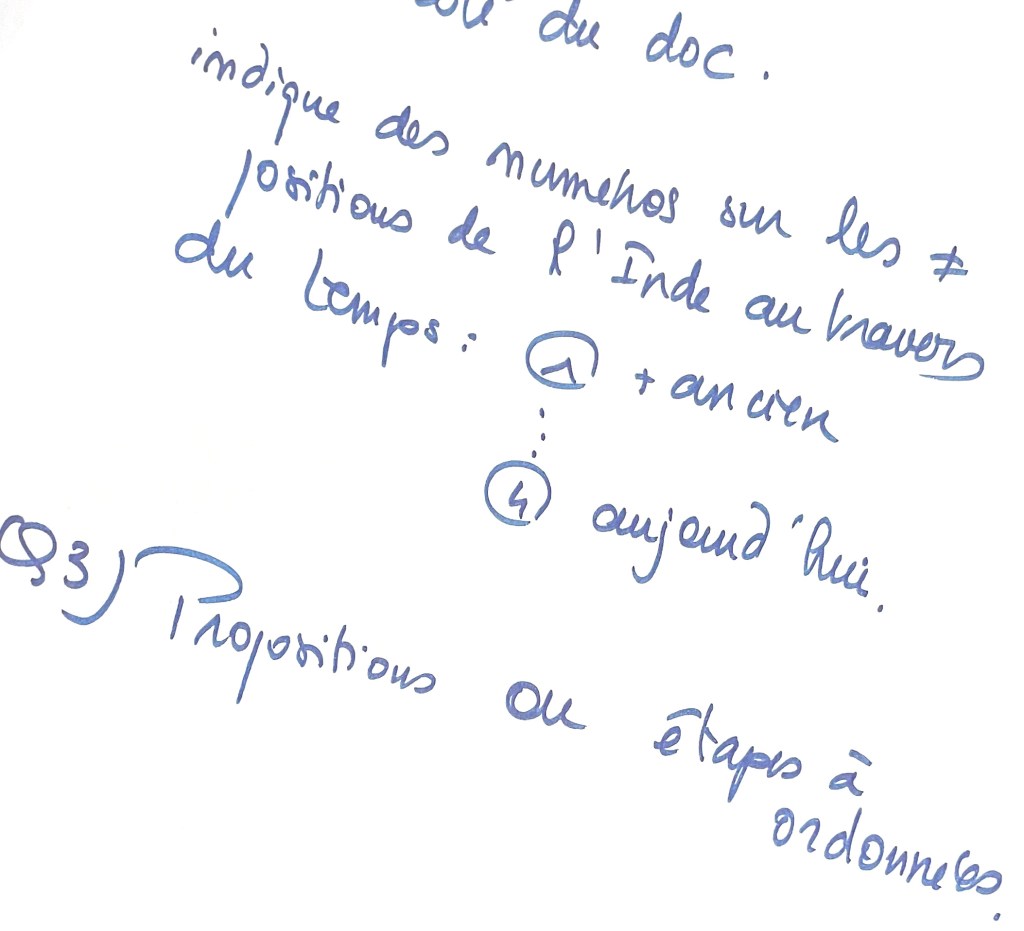 du doc.
indique des numéros sur les ≠
positions de l'Inde au travers
du temps : ① + ancien
⋮
④ aujourd'hui.
Q3) Propositions ou étapes à
ordonnées.